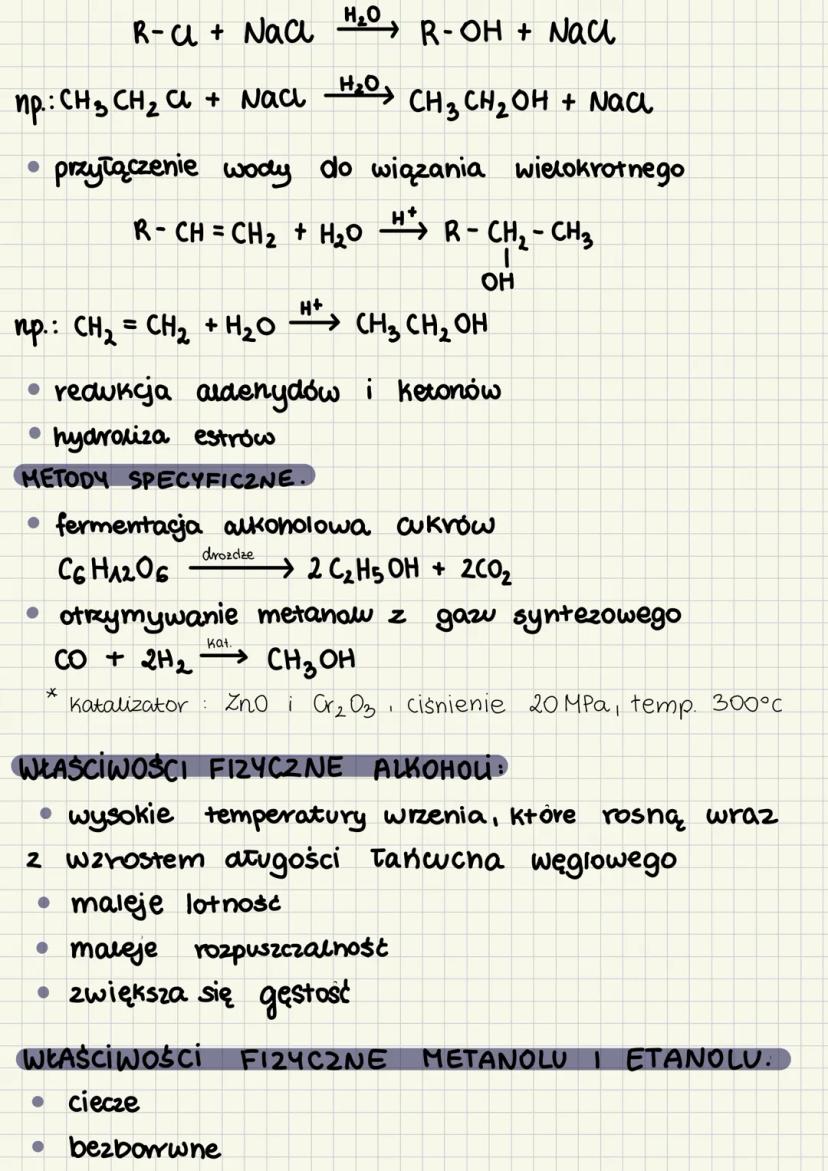 R-Cl + NaCl —H₂O→ R-OH + NaCl
np.: CH₃CH₂Cl + NaCl —H₂O→ CH₃CH₂OH + NaCl
• przyłączenie wody do wiązania wielokrotnego
R-CH=CH₂ + H₂O —H⁺→ R-CH₂-CH₃
|
OH
np.: CH₂=CH₂ + H₂O —H⁺→ CH₃CH₂OH
• redukcja aldehydów i ketonów
• hydroliza estrów
METODY SPECYFICZNE.
• fermentacja alkoholowa cukrów
C₆H₁₂O₆ —drożdże→ 2C₂H₅OH + 2CO₂
• otrzymywanie metanolu z gazu syntezowego
CO + 2H₂ —kat.→ CH₃OH
* katalizator : ZnO i Cr₂O₃, ciśnienie 20 MPa, temp. 300°C
WŁAŚCIWOŚCI FIZYCZNE ALKOHOLI:
• wysokie temperatury wrzenia, które rosną wraz
z wzrostem długości łańcucha węglowego
• maleje lotność
• maleje rozpuszczalność
• zwiększa się gęstość
WŁAŚCIWOŚCI FIZYCZNE METANOLU I ETANOLU:
• ciecze
• bezbarwne